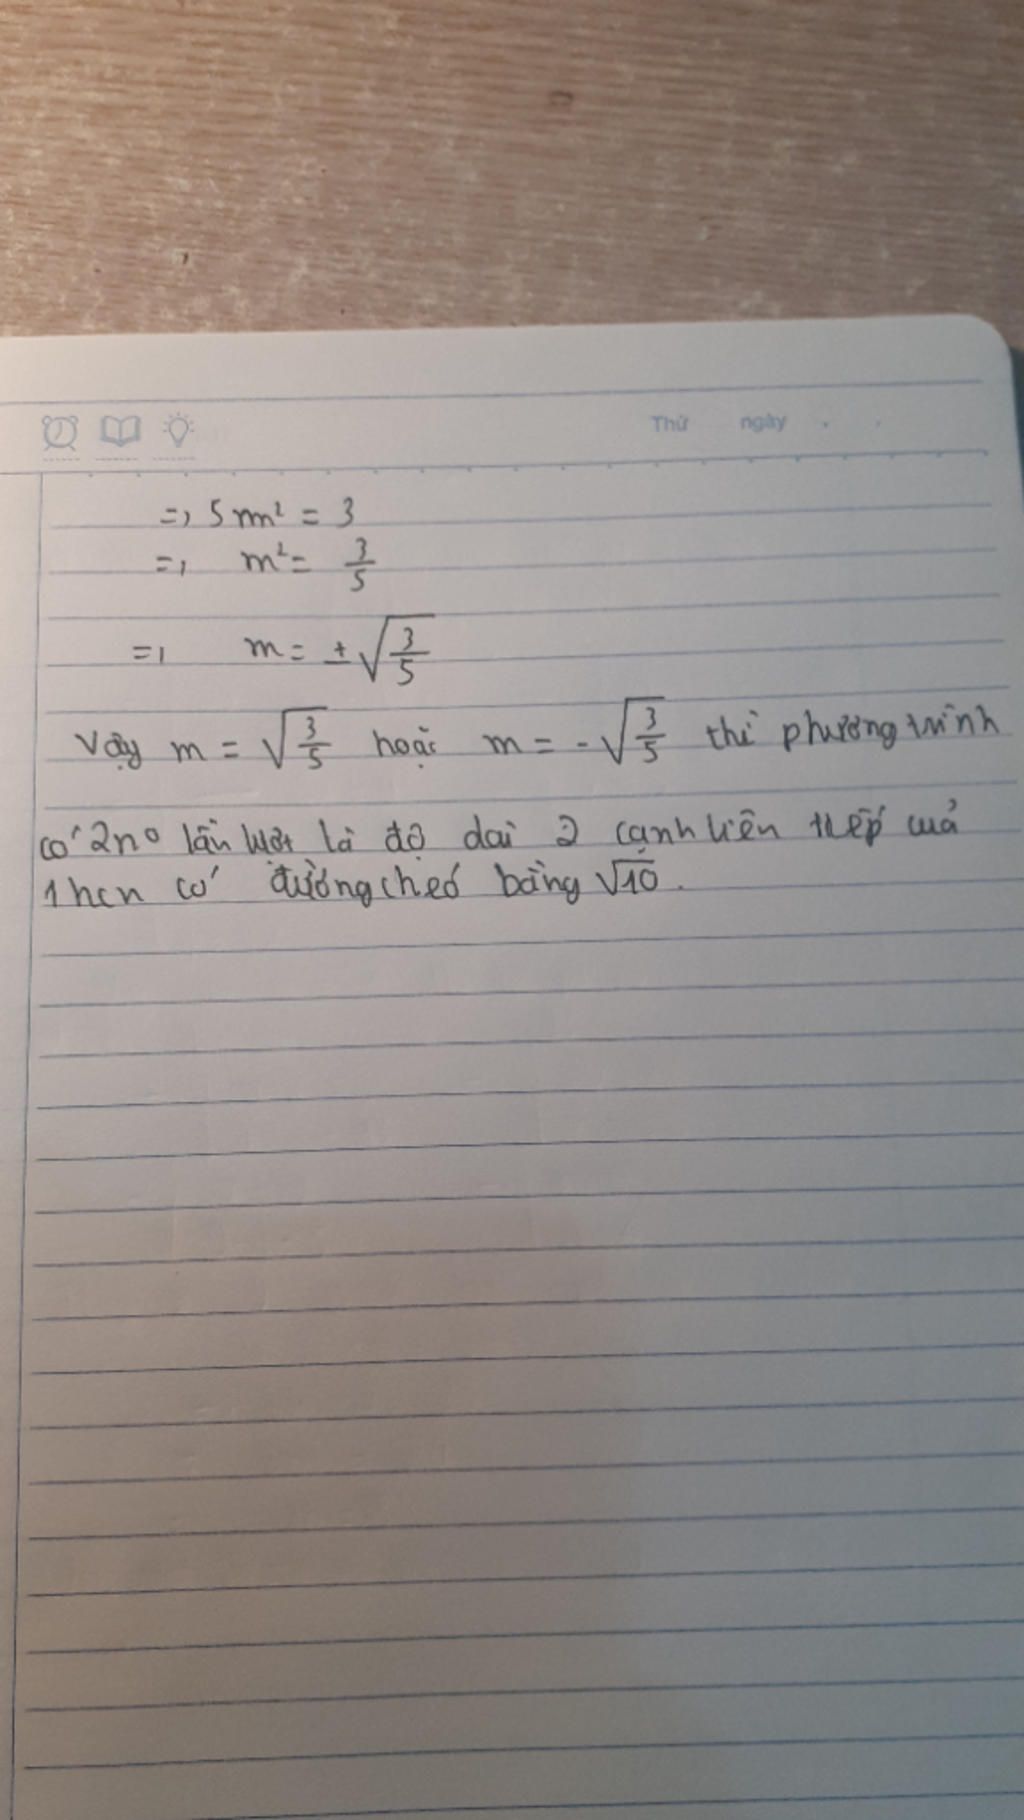 Thứ ngày
=> 5m² = 3
=> m² = 3/5
=> m = ±√(3/5)
Vậy m = √(3/5) hoặc m = -√(3/5) thì phương trình
có 2n⁰ lần lượt là độ dài 2 cạnh liên tiếp cuả
1 hcn có đường chéo bằng √10.